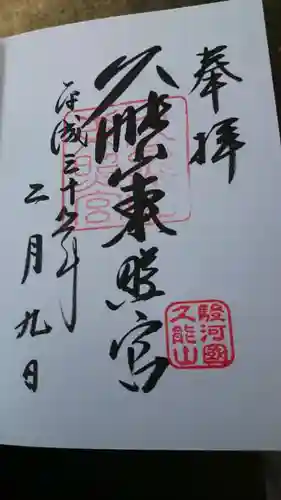 奉拝
久能山東照宮
平成三十一年
二月九日
駿河國
久能山